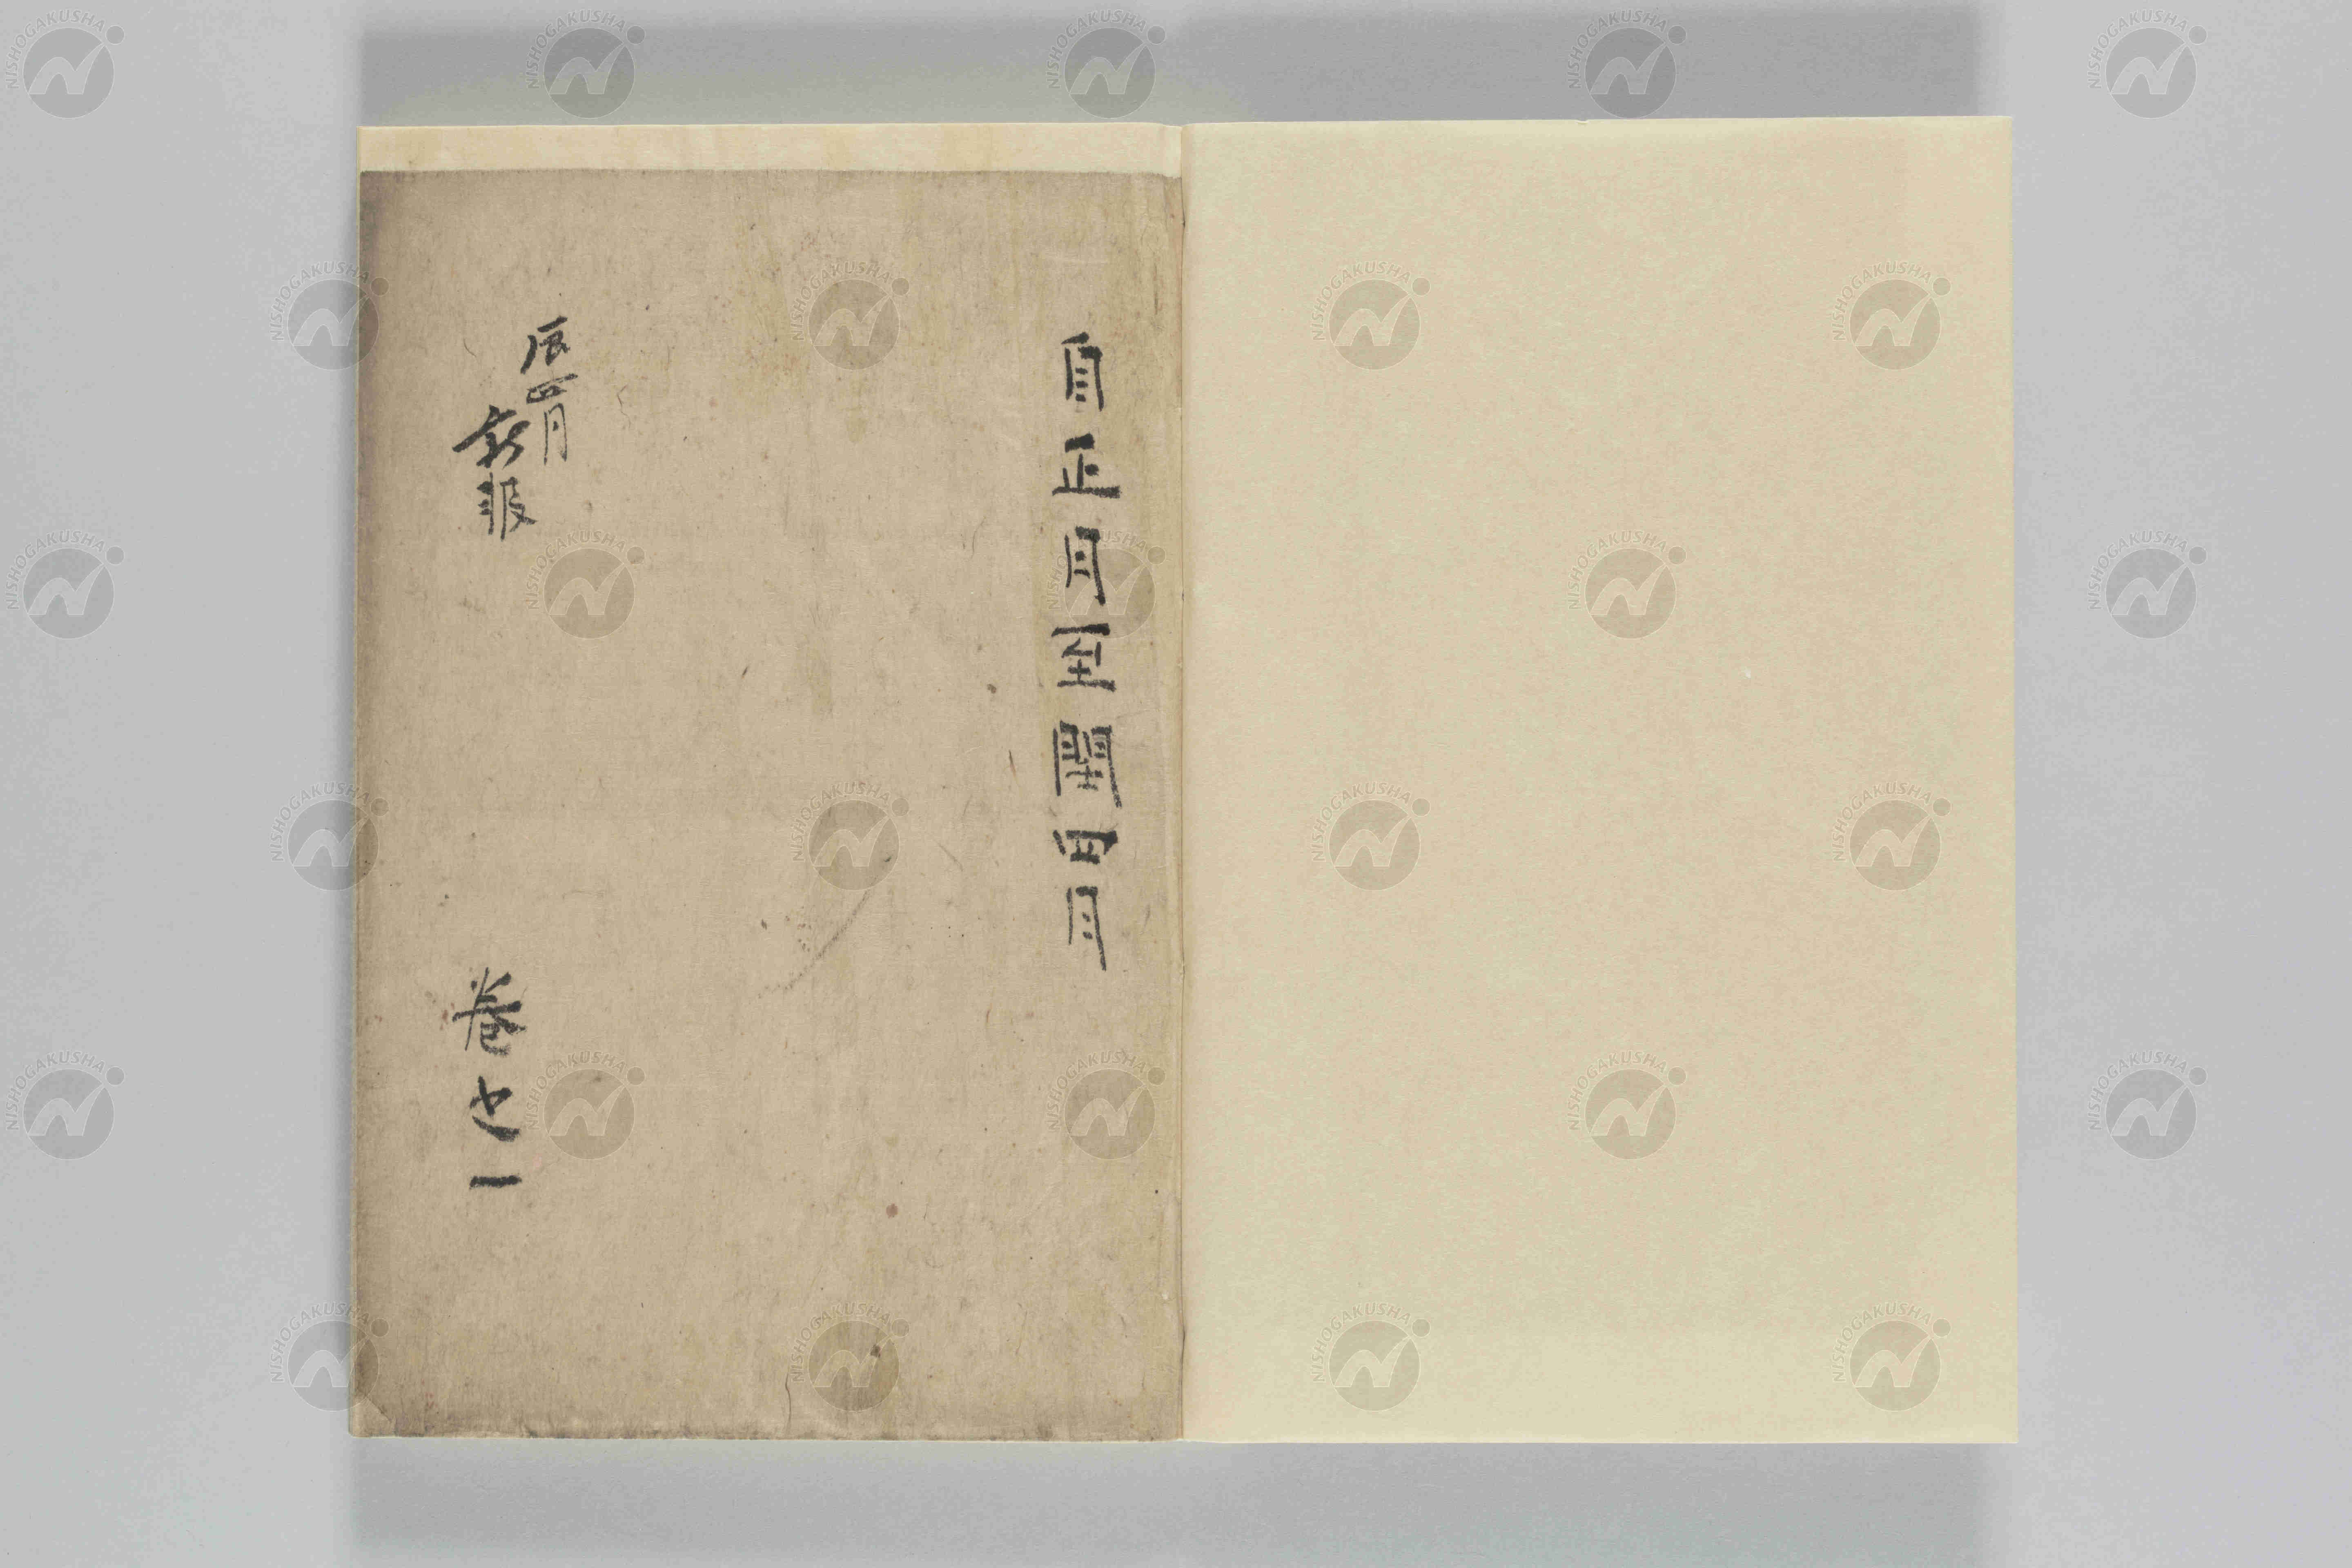 自正月至閏四月
辰四月
新報
巻之一
NISHOGAKUSHA